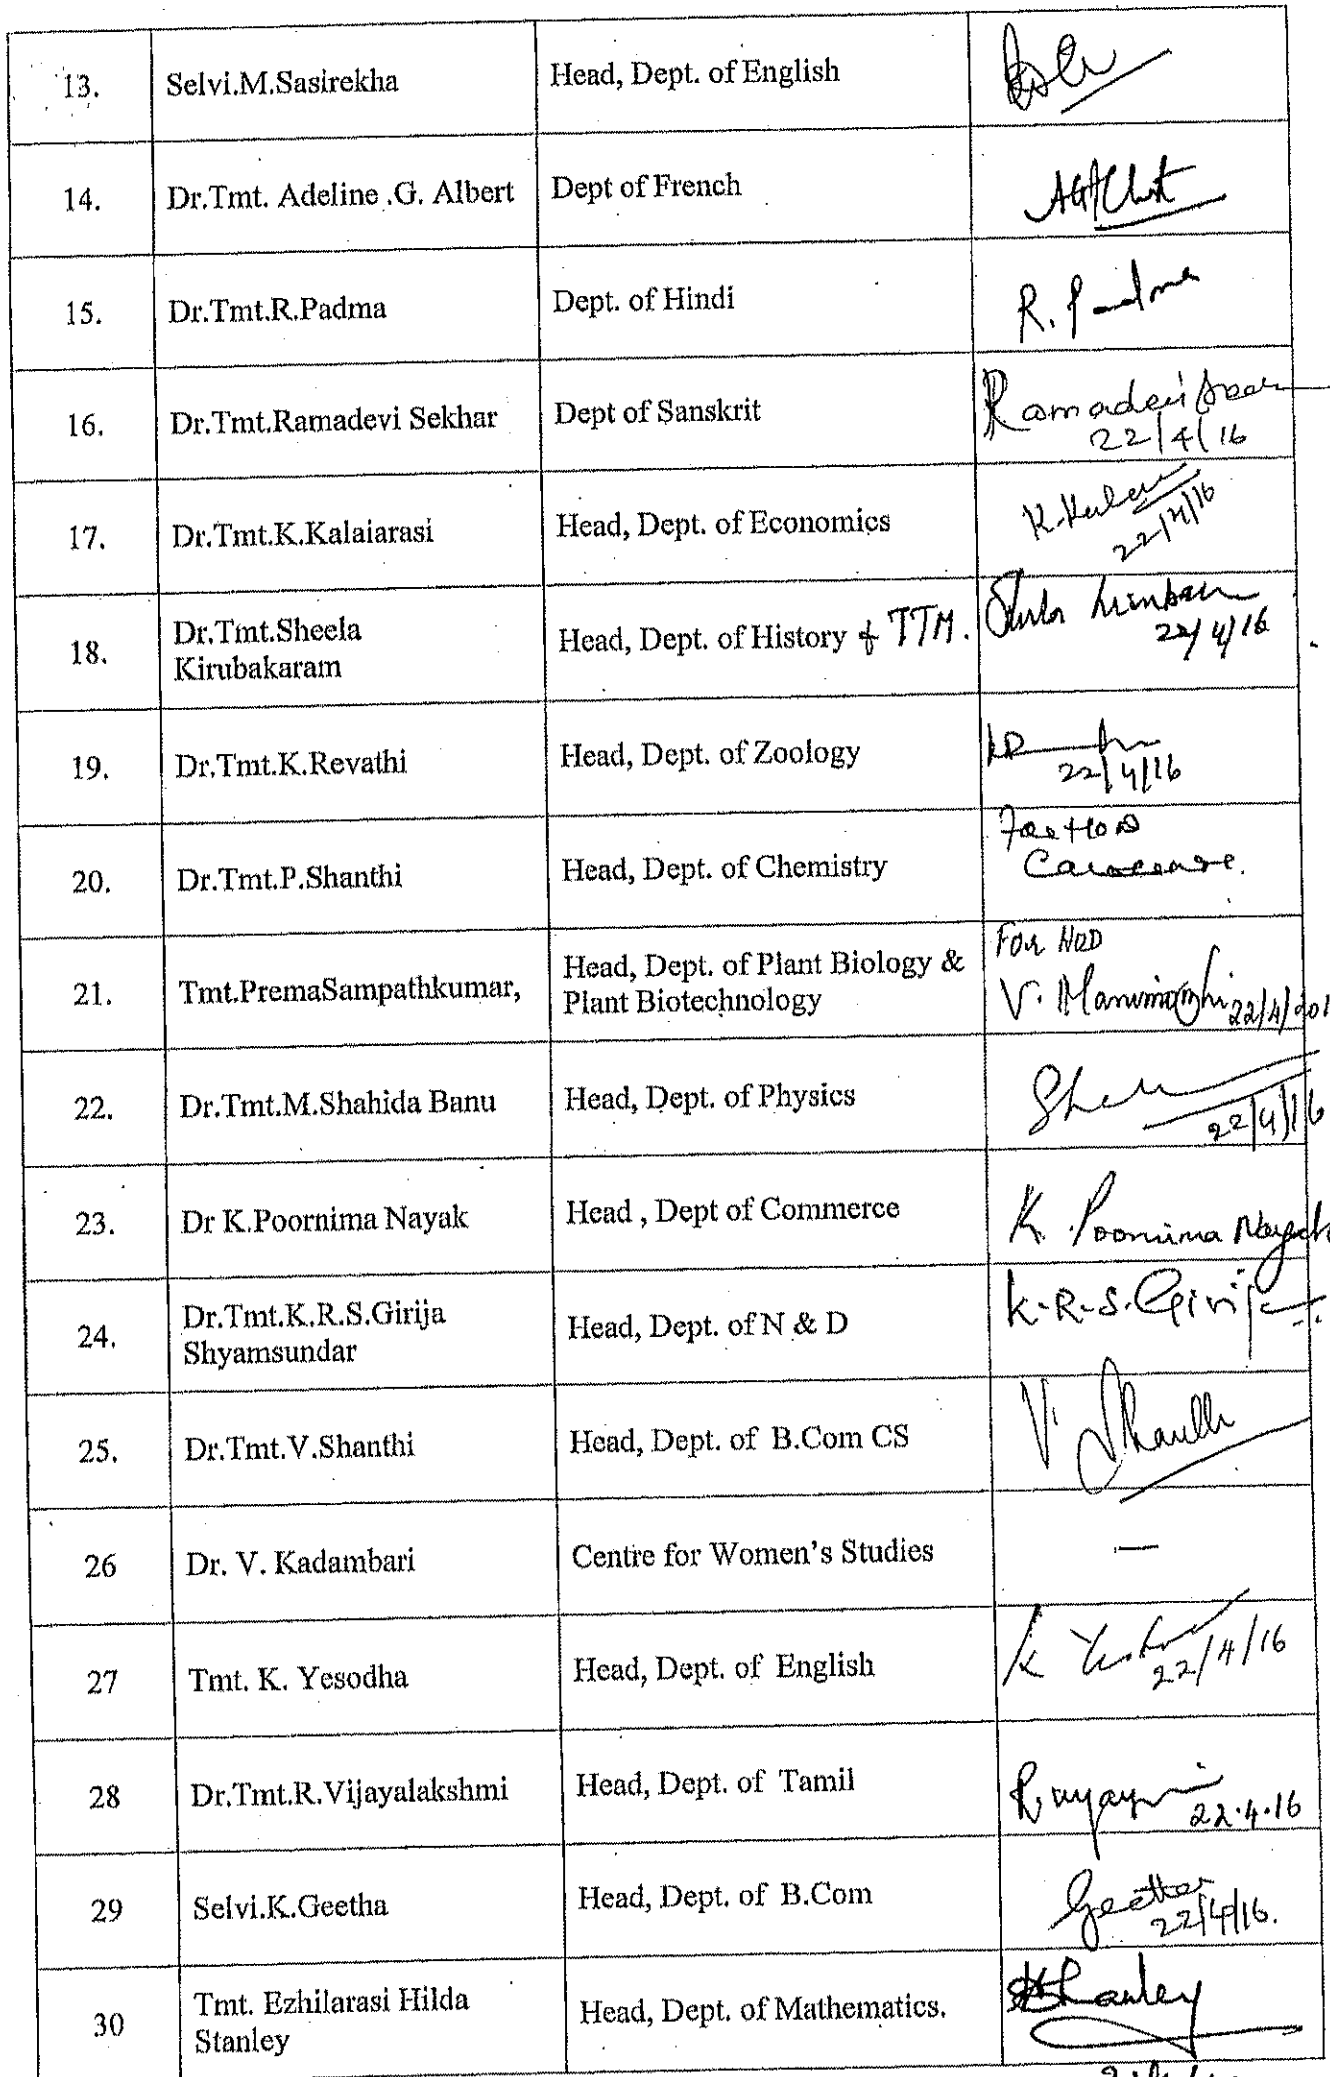 13. Selvi.M.Sasirekha Head, Dept. of English
14. Dr.Tmt. Adeline .G. Albert Dept of French
15. Dr.Tmt.R.Padma Dept. of Hindi R. Padma
16. Dr.Tmt.Ramadevi Sekhar Dept of Sanskrit Ramadevi
22/4/16
17. Dr.Tmt.K.Kalaiarasi Head, Dept. of Economics
22/4/16
18. Dr.Tmt.Sheela
Kirubakaram Head, Dept. of History & TTM.
22/4/16
19. Dr.Tmt.K.Revathi Head, Dept. of Zoology
22/4/16
20. Dr.Tmt.P.Shanthi Head, Dept. of Chemistry For HOD
21. Tmt.PremaSampathkumar, Head, Dept. of Plant Biology &
Plant Biotechnology
For HOD
V. 22/4/201
22. Dr.Tmt.M.Shahida Banu Head, Dept. of Physics
22/4/16
23. Dr K.Poornima Nayak Head , Dept of Commerce K. Poornima Nayak
24. Dr.Tmt.K.R.S.Girija
Shyamsundar Head, Dept. of N & D K.R.S.Girija
25. Dr.Tmt.V.Shanthi Head, Dept. of B.Com CS V. Shanthi
26 Dr. V. Kadambari Centre for Women's Studies —
27 Tmt. K. Yesodha Head, Dept. of English
22/4/16
28 Dr.Tmt.R.Vijayalakshmi Head, Dept. of Tamil
22.4.16
29 Selvi.K.Geetha Head, Dept. of B.Com Geetha
22/4/16.
30 Tmt. Ezhilarasi Hilda
Stanley Head, Dept. of Mathematics. Stanley